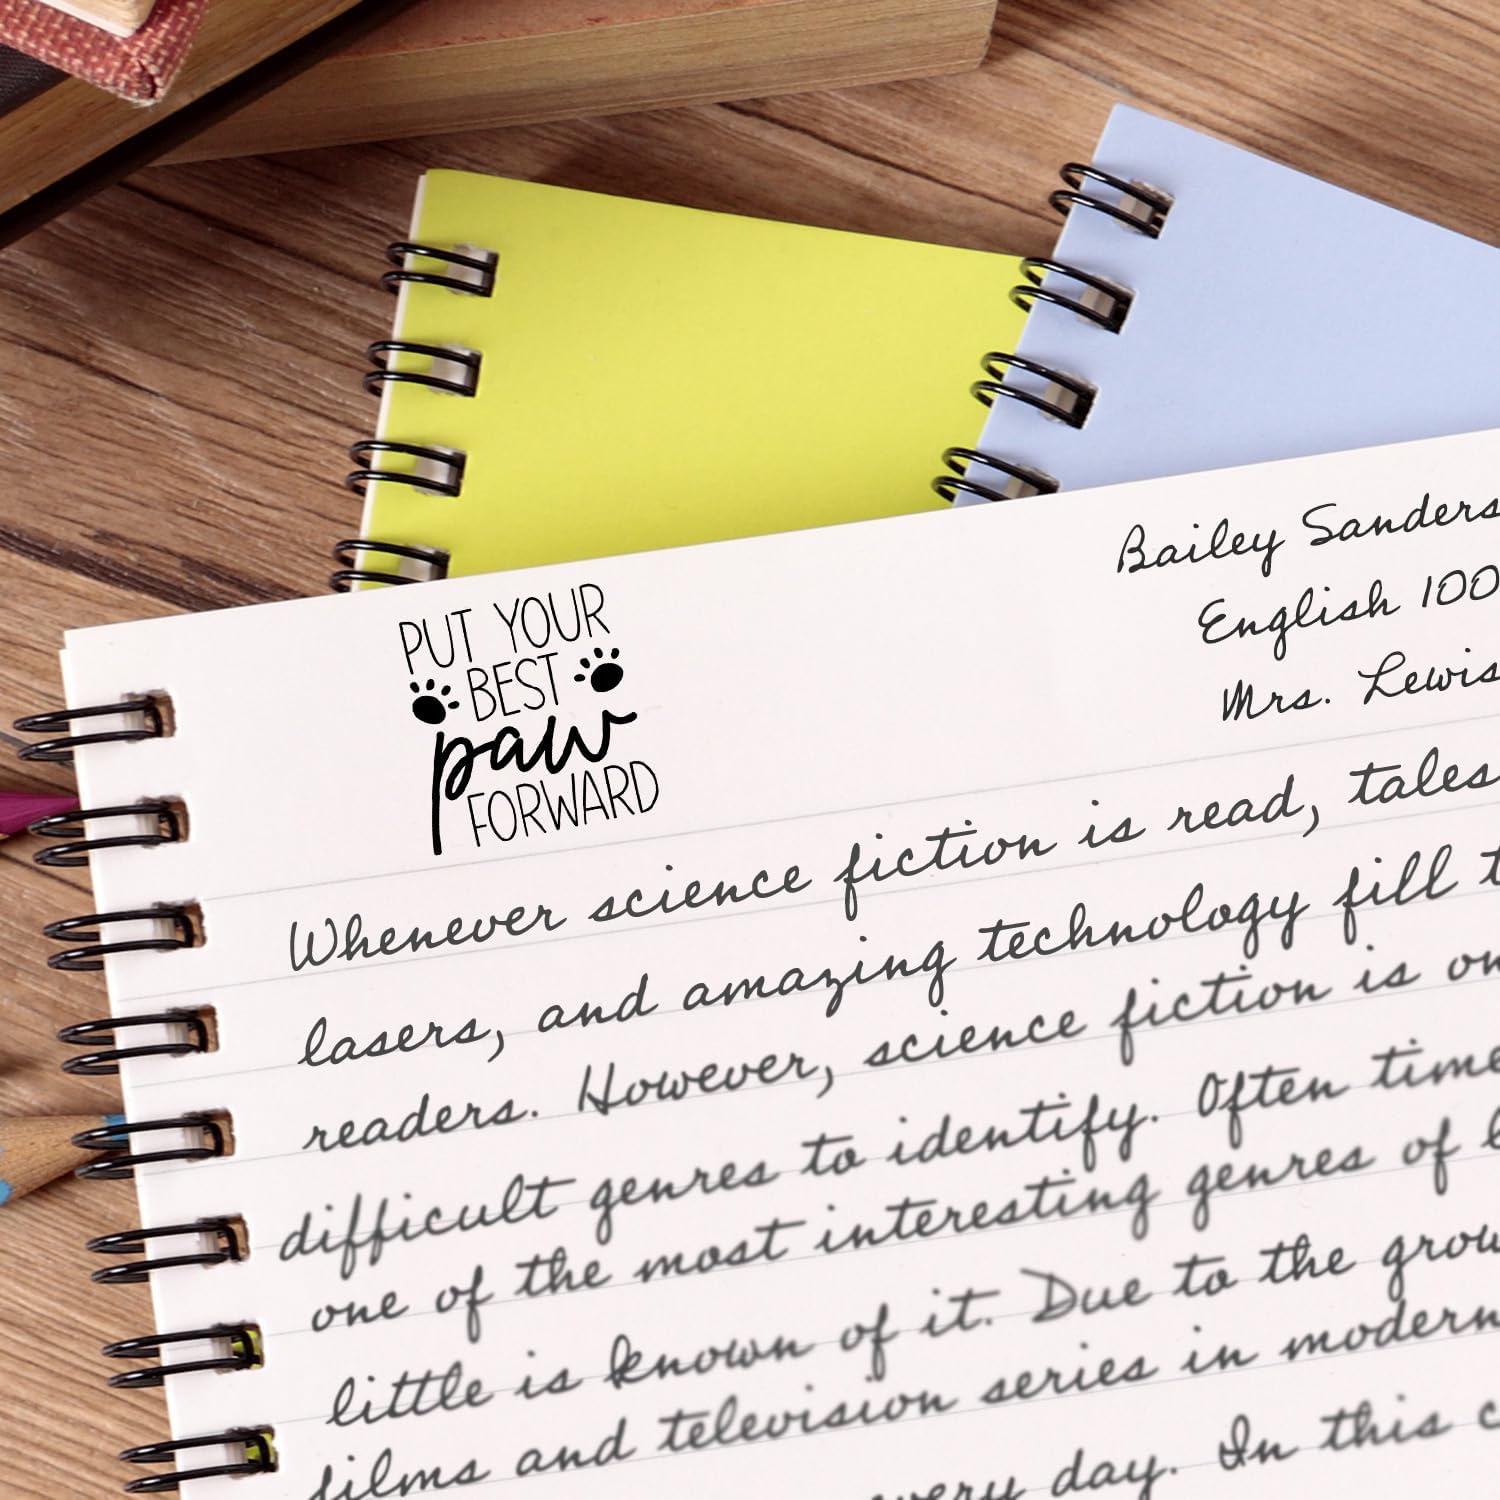 PUT YOUR
BEST
paw
FORWARD
Bailey Sanders
English 100
Mrs. Lewis
Whenever science fiction is read, tales
lasers, and amazing technology fill
readers. However, science fiction is
difficult genres to identify. Often
one of the most interesting genres of
little is known of it. Due to the
films and television series in modern
day. In this